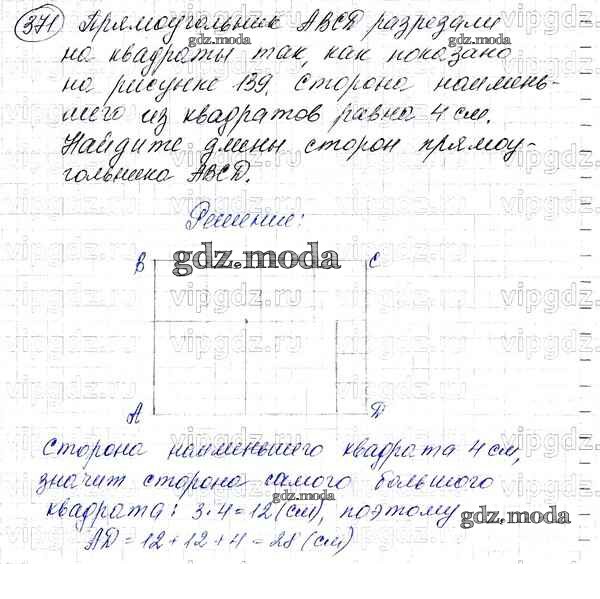 371 Прямоугольник ABCD разрезали
на квадраты так, как показано
на рисунке 139. Сторона наимень-
шего из квадратов равна 4 см.
Найдите длины сторон прямоу-
гольника ABCD.
Решение:
B C
A D
Сторона наименьшего квадрата 4 см,
значит сторона самого большого
квадрата: 3·4=12 (см), поэтому
AD = 12 + 12 + 4 = 28 (см)
gdz.moda
gdz.moda
gdz.moda
gdz.moda
gdz.moda
gdz.moda
vipgdz.ru